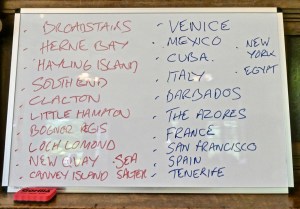 BROADSTAIRS
HERNE BAY
HAYLING ISLAND
SOUTHEND
CLACTON
LITTLE HAMPTON
BOGNOR REGIS
LOCH LOMOND
NEW QUAY
CANVEY ISLAND
SEA
SALTER
VENICE
MEXICO
CUBA.
ITALY
BARBADOS
THE AZORES
FRANCE
SAN FRANCISCO
SPAIN
TENERIFE
NEW
YORK
EGYPT